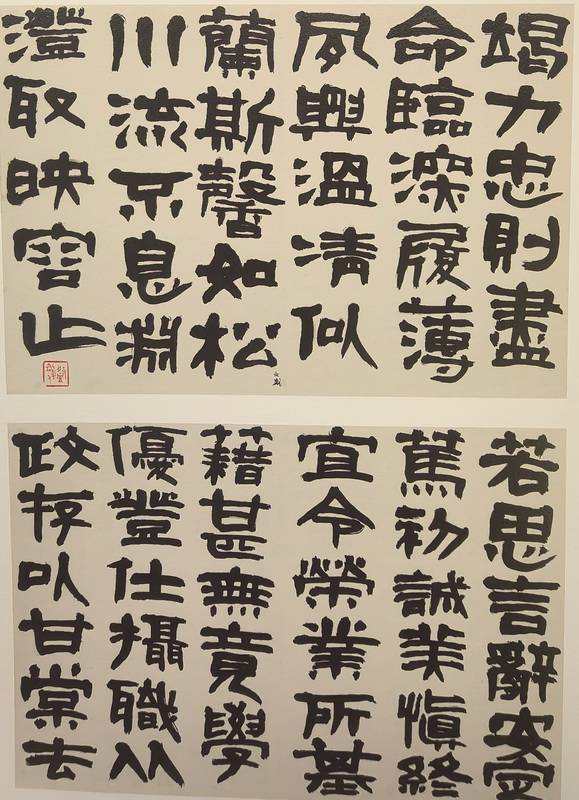 竭力忠則盡
命臨深履薄
夙興溫凊似
蘭斯馨如松
之盛
川流不息淵
澄取映容止
若思言辭安定
篤初誠美慎終
宜令榮業所基
藉甚無竟學
優登仕攝職從
政存以甘棠去